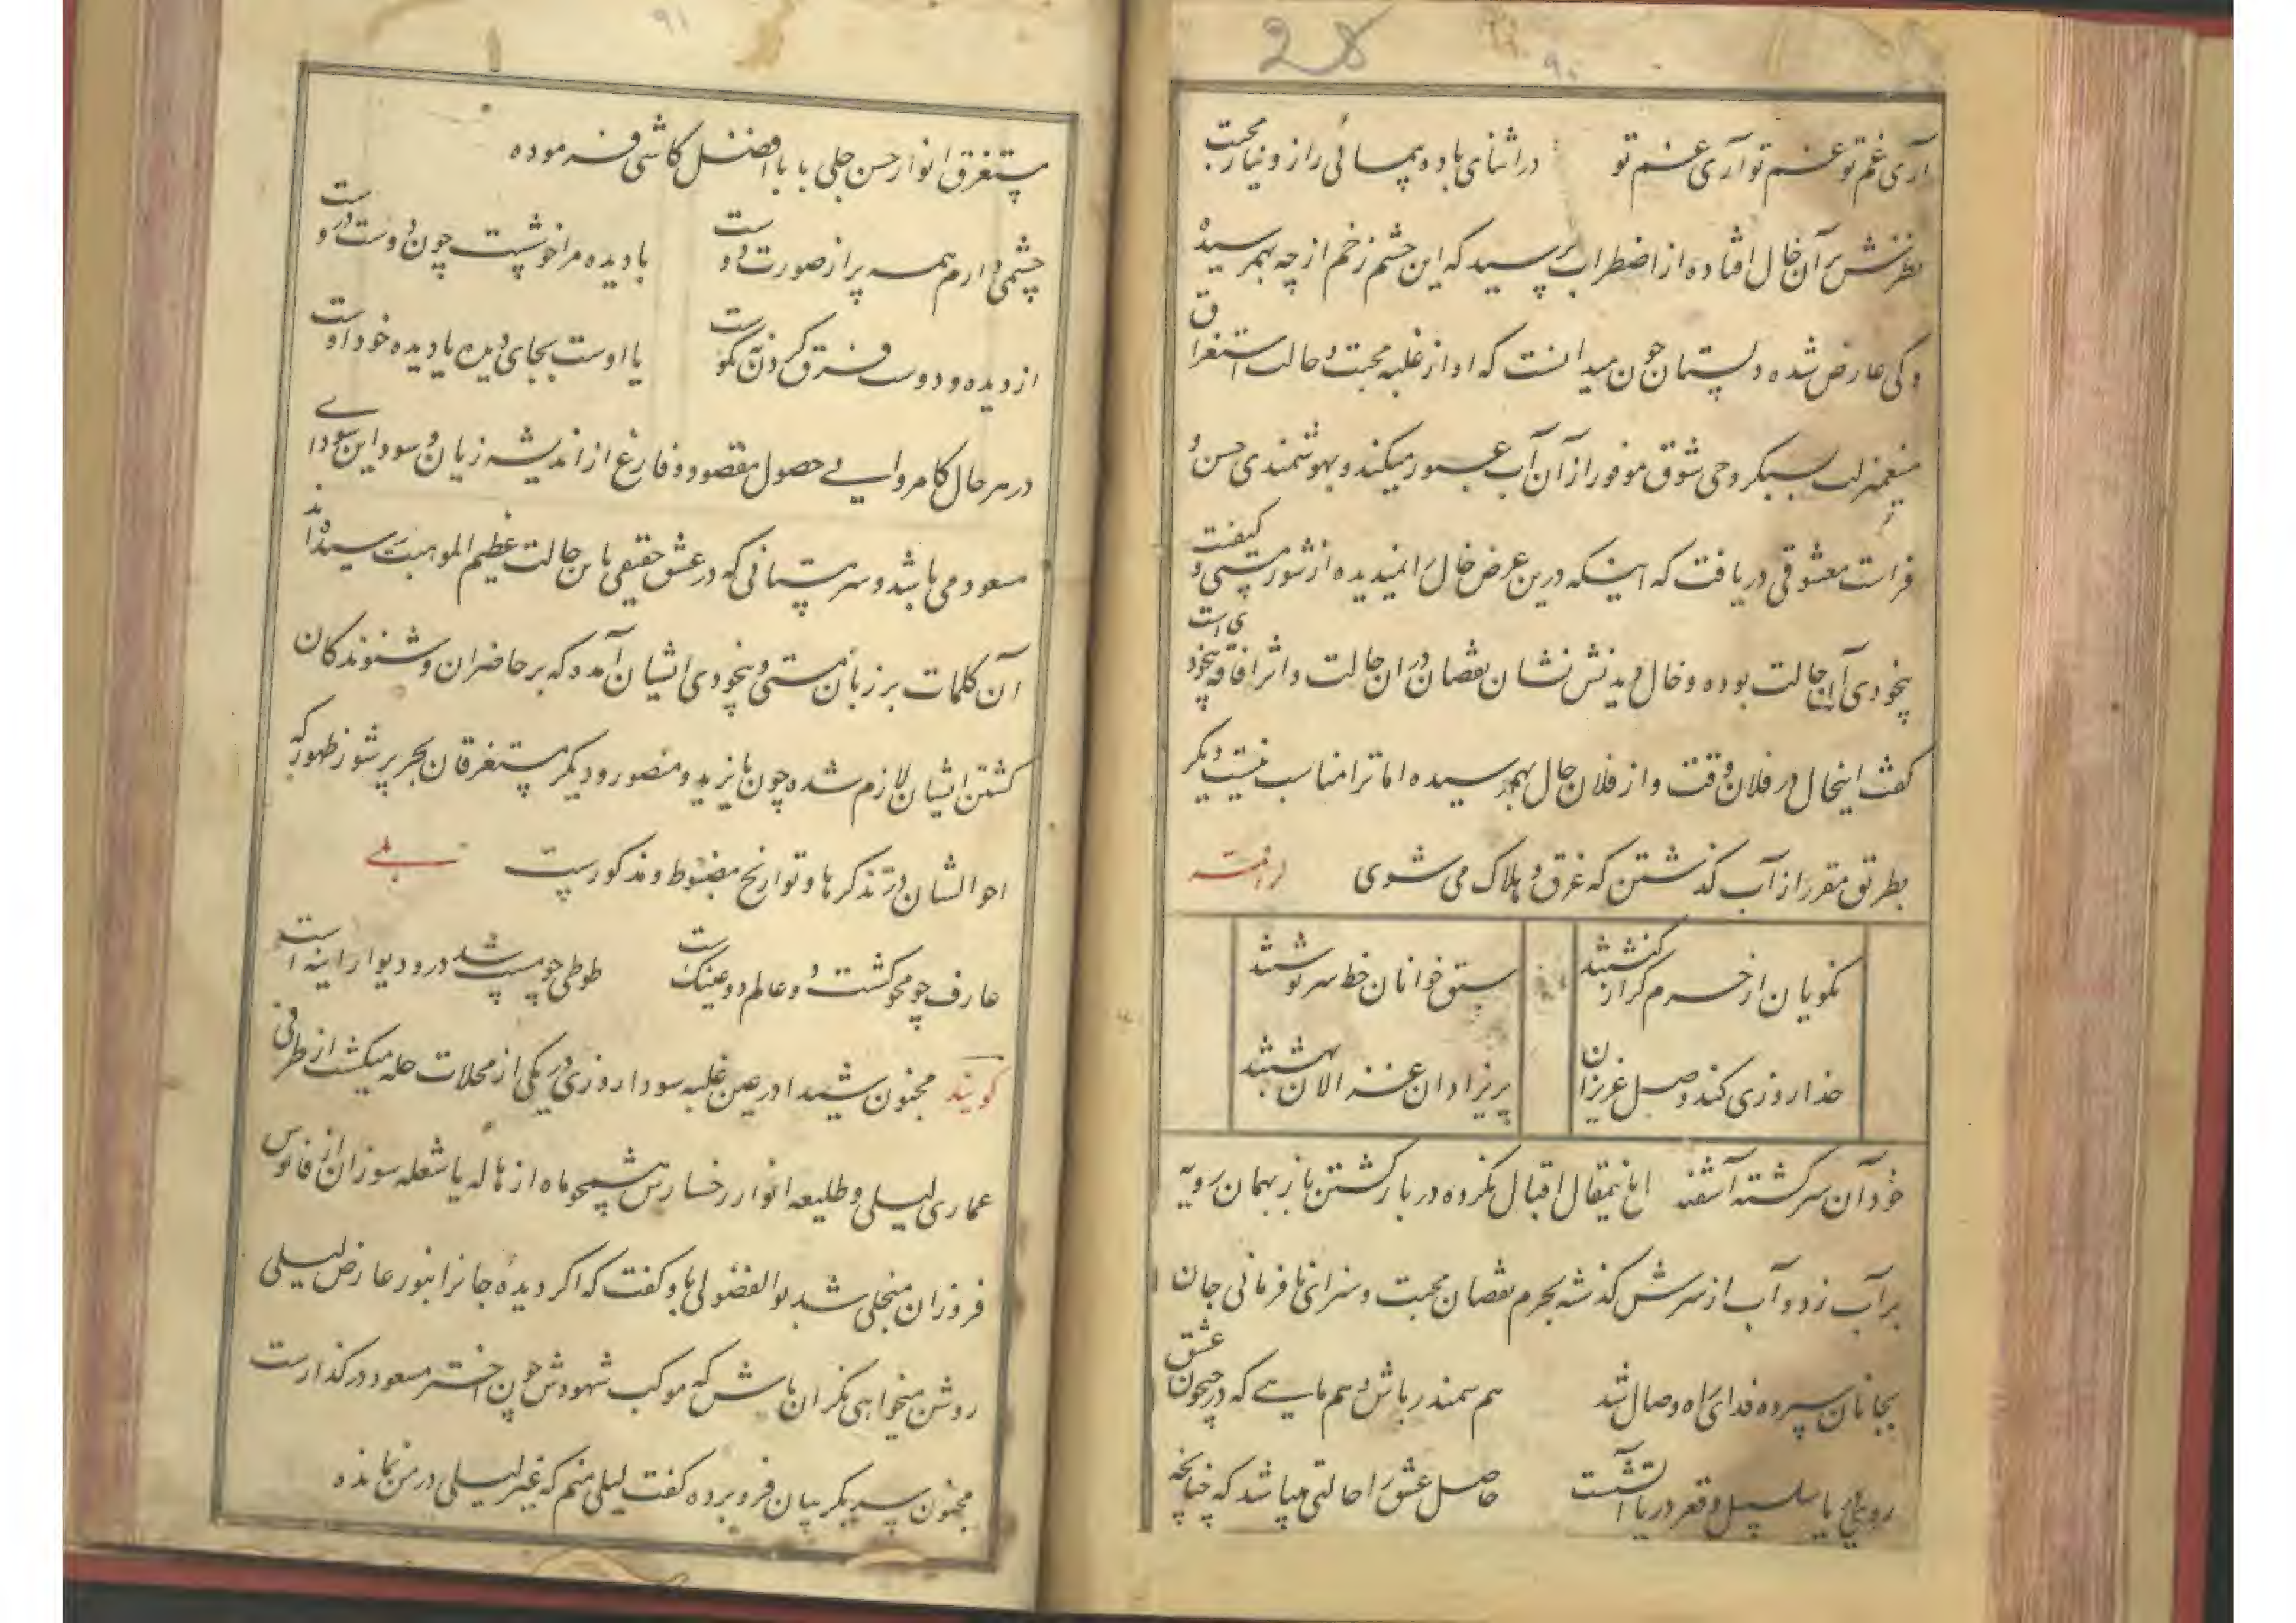 28
۹۰
آری غم تو غم تو آری غم تو در اثنای باده پیمائی راز و نیاز محبت
نظرش بر آن خال افتاده از اضطراب پرسید که این چشم زخم از چه بهمرسیده
و کی عارض شده دلستان چون میدانست که او از غلبه محبت و حالت استغراق
سبکروحی شوق موفور از آن آب عبور میکند و بهوشمندی حسن و
فراست معشوقی دریافت که اینکه درین عرض خال را نمیدیده از شور مستی و کیفیت
بیخودی آن حالت بوده و خال دیدنش نشان نقصان در ان حالت و اثر افاقه بیخودی است
گفت اینخال در فلان وقت و از فلان حال بهمرسیده اما ترا مناسب نیست دیگر
بطریق مقرر از آب گذشتن که غرق و هلاک می شوی
نکویان از خرم گر از کنشتند سبق خوانان خط سرنوشتند
خدا روزی کند وصل عزیزان پریزادان غزالان بهشتند
خود آن سرگشته آشفته اما نمقال اقبال نکرده در باز گشتن باز بهمان رویه
بر آب زد و آب از سرش گذشته بجرم نقصان محبت و سزای نافرمانی جان
بجانان سپرده فدای راه وصال شد هم سمندر باش و هم ماهی که در جیحون عشق
روی دریا سلسبیل و قعر دریا آتشست حاصل عشق را حالتی میباشد که چنانچه
۹۱
مستغرق انوار حسن جلی بابا افضل کاشی فرموده
چشمی دارم همه پر از صورت دوست با دیده مرا خوشست چون دوست دروست
از دیده و دوست فرق کردن نه نکوست یا اوست بجای دیده یا دیده خود اوست
در هر حال کامروایی حصول مقصود و فارغ از اندیشه زیان و سود این سودای
مسعود می باشد و سرمستانی که در عشق حقیقی باین حالت عظیم الموهبت رسیده اند
آن کلمات بر زبان مستی و بیخودی ایشان آمده که بر حاضران و شنوندگان
کشتن ایشان لازم شده چون بایزید و منصور و دیگر مستغرقان بحر پر شور ظهور که
احوالشان در تذکرها و تواریخ مضبوط و مذکورست بلی
عارف چو محو گشت دو عالم دو عینکست طوطی چو مست شد در و دیوار آینه است
گویند مجنون شیدا در عین غلبه سودا روزی در یکی از محلات حله میگشت از طرفی
عماری لیلی و طلیعه انوار رخسارش همچو ماه از هاله یا شعله سوزان از فانوس
فروزان منجلی شد بوالفضولی باو گفت که اگر دیده جانرا بنور عارض لیلی
روشن میخواهی نگران باش که موکب شهودش چون اختر مسعود در گذارست
مجنون سر بگریبان فرو برده گفت لیلی منم که غیر لیلی در من نمانده